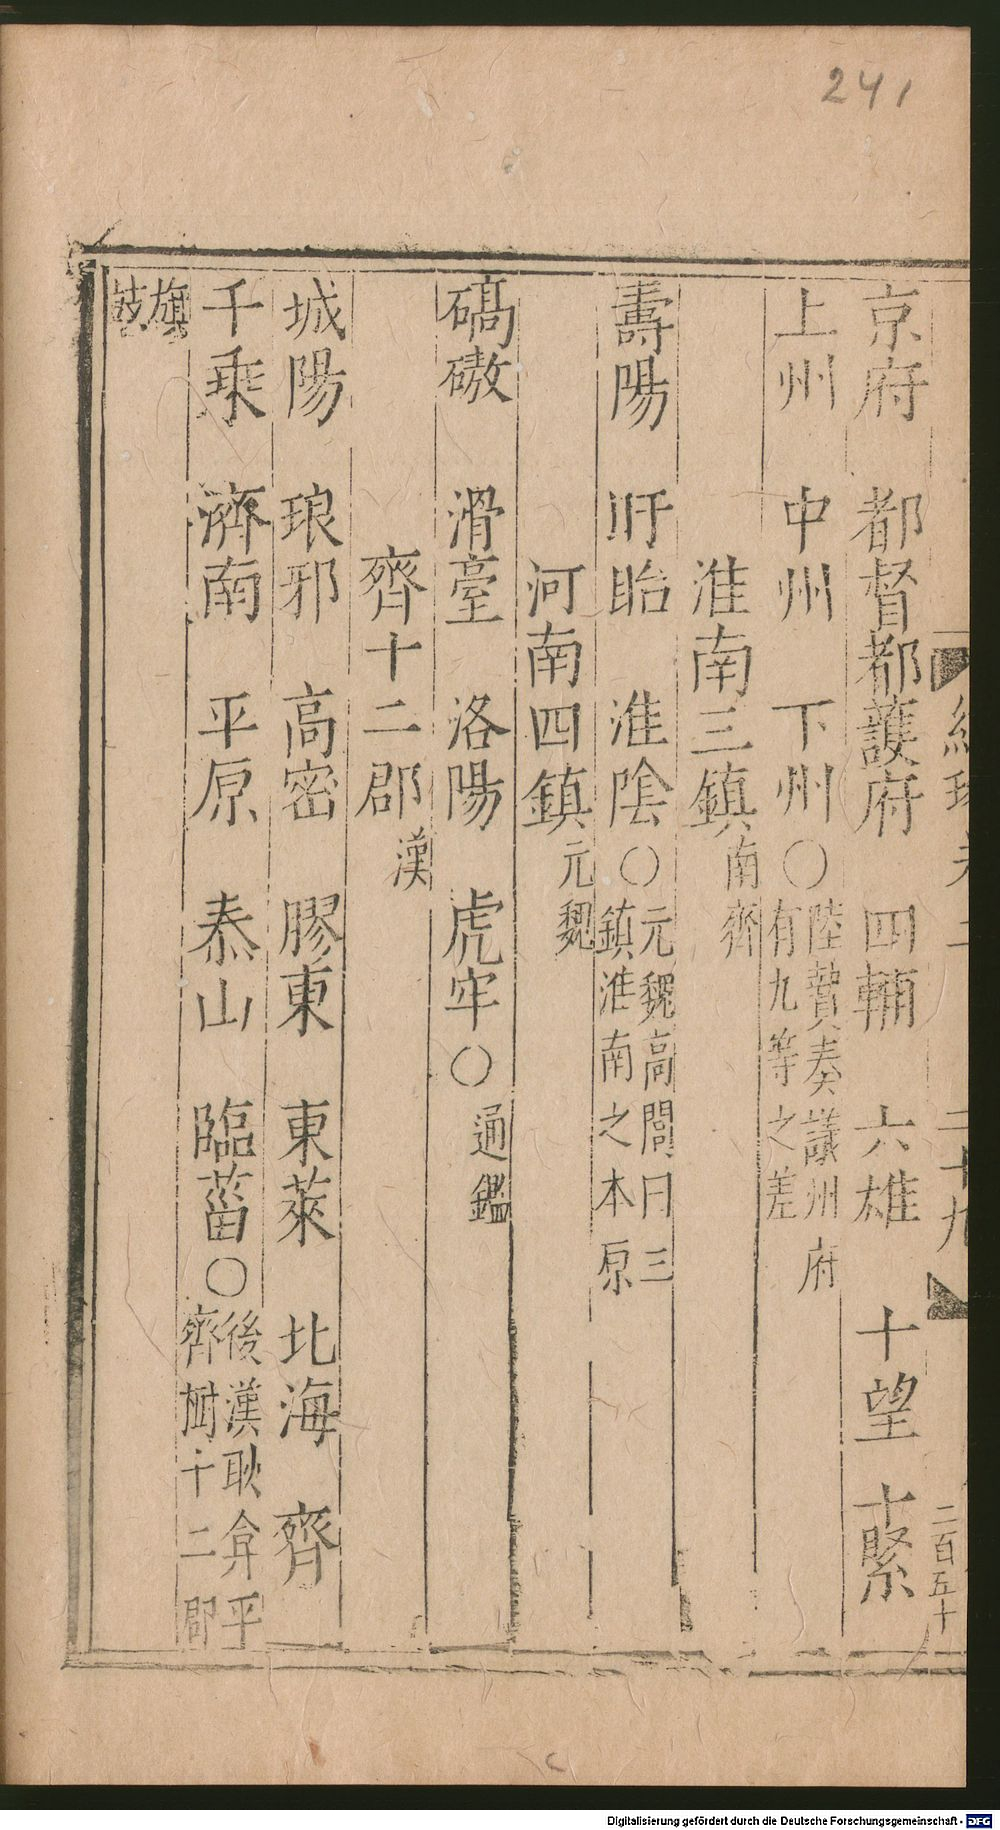 241
二十九
二百五十
京府 都督都護府 四輔 六雄 十望 十緊
上州 中州 下州〇陸贄奏議州府有九等之差
淮南三鎮南齊
壽陽 盱眙 淮陰〇元魏高閭曰三鎮淮南之本原
河南四鎮元魏
碻磝 滑臺 洛陽 虎牢〇通鑑
齊十二郡漢
城陽 琅邪 高密 膠東 東萊 北海 齊
千乘 濟南 平原 泰山 臨菑〇後漢耿弇平齊樹十二郡
旗鼓
Digitalisierung gefördert durch die Deutsche Forschungsgemeinschaft - DFG